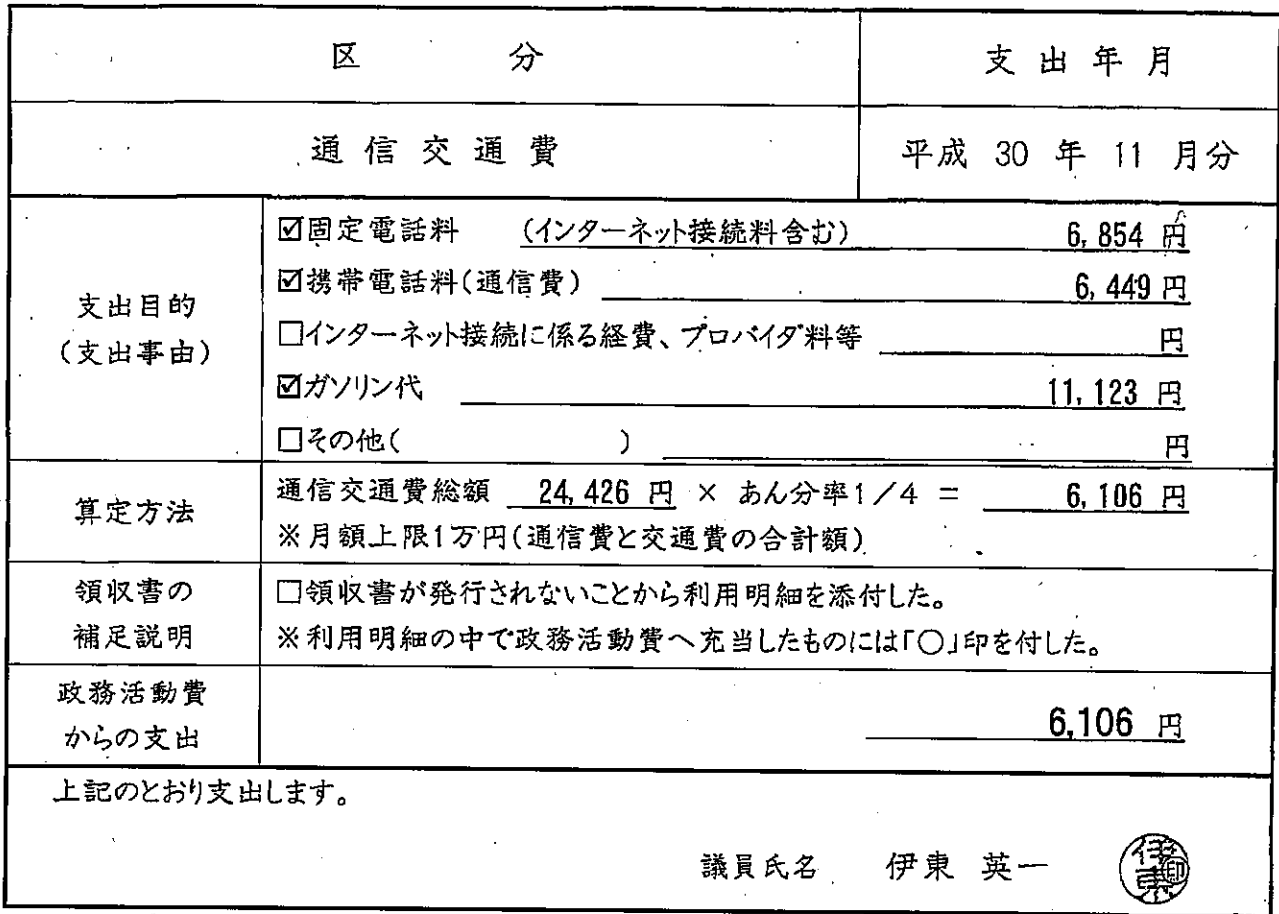 区 分 支出年月
通信交通費 平成 30 年 11 月分
支出目的
(支出事由)
☑固定電話料 (インターネット接続料含む) 6,854 円
☑携帯電話料(通信費) 6,449 円
□インターネット接続に係る経費、プロバイダ料等 円
☑ガソリン代 11,123 円
□その他( ) 円
算定方法
通信交通費総額 24,426 円 × あん分率1/4 = 6,106 円
※月額上限1万円(通信費と交通費の合計額)
領収書の
補足説明
□領収書が発行されないことから利用明細を添付した。
※利用明細の中で政務活動費へ充当したものには「○」印を付した。
政務活動費
からの支出
6,106 円
上記のとおり支出します。
議員氏名 伊東 英一 伊東 印